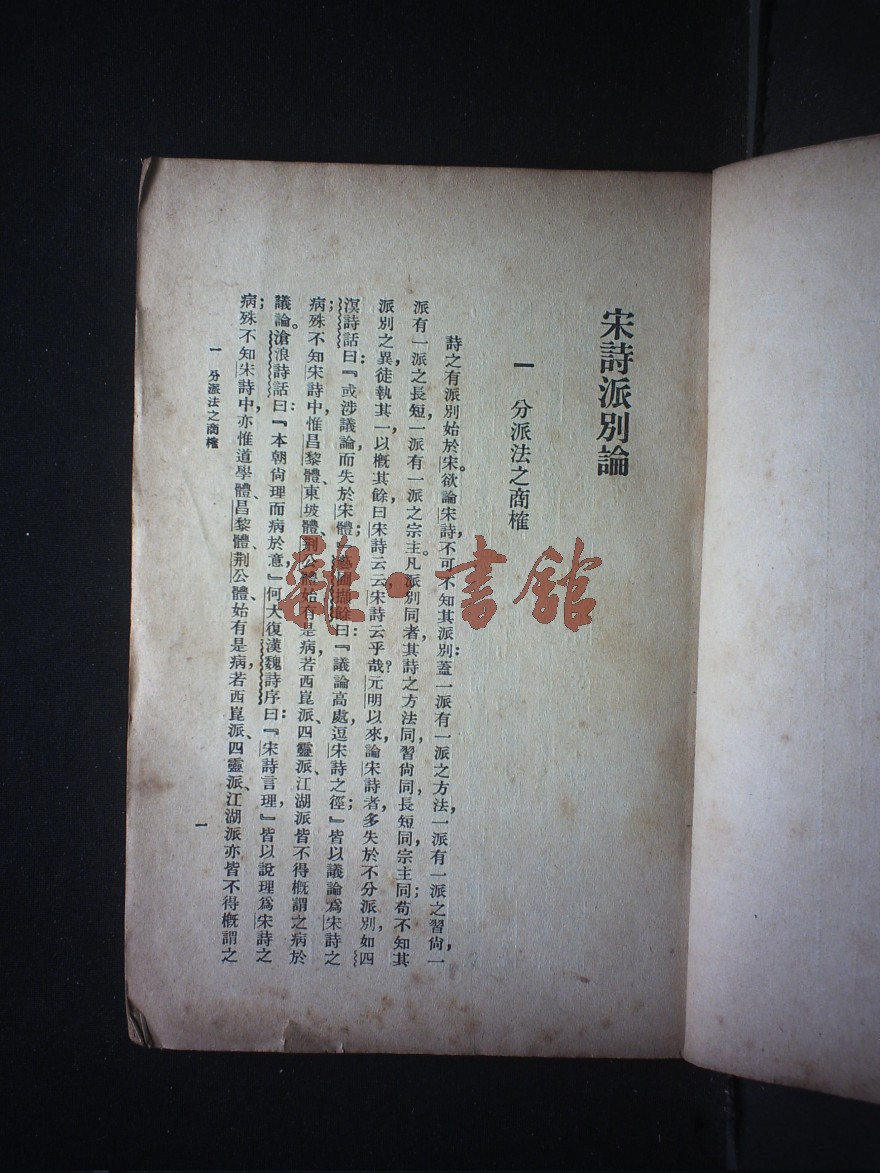 宋詩派別論
一　分派法之商榷
詩之有派別始於宋。欲論宋詩，不可不知其派別：蓋一派有一派之方法，一派有一派之習尙，一
派有一派之長短，一派有一派之宗主。凡派別同者，其詩之方法同，習尙同，長短同，宗主同；苟不知其
派別之異，徒執其一以槪其餘，曰宋詩云云，宋詩云乎哉？元明以來，論宋詩者，多失於不分派別，如四
溟詩話曰：『或涉議論，而失於宋體；』藝圃擷餘曰：『議論高處，逗宋詩之徑；』皆以議論爲宋詩之
病，殊不知宋詩中，惟昌黎體、東坡體、荆公體，始有是病，若西崑派、四靈派、江湖派，皆不得槪謂之病於
議論。滄浪詩話曰：『本朝尙理而病於意，』何大復漢魏詩序曰：『宋詩言理，』皆以說理爲宋詩之
病；殊不知宋詩中，亦惟道學體、昌黎體、荆公體，始有是病，若西崑派、四靈派、江湖派，亦皆不得槪謂之
一　分派法之商榷
一
雜·書館